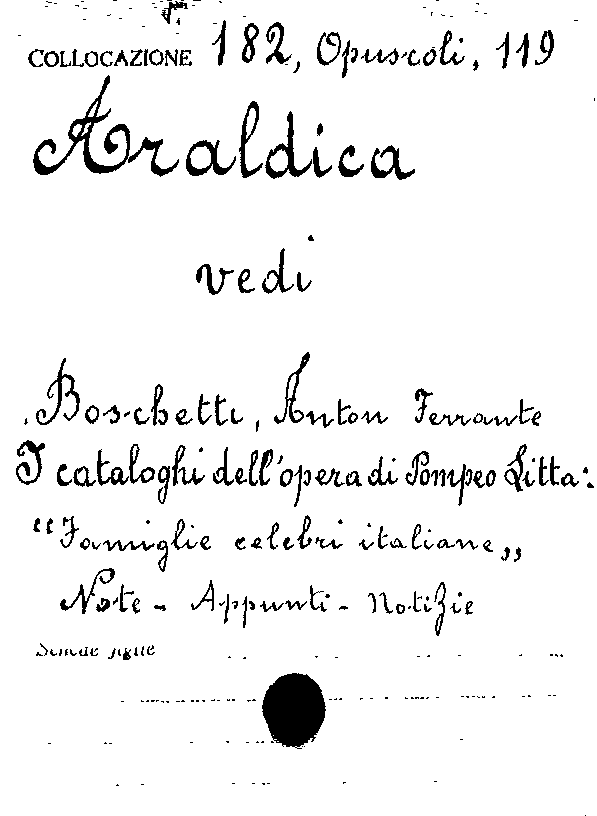 COLLOCAZIONE 182, Opuscoli, 119
Araldica
vedi
Boschetti, Anton Ferrante
I cataloghi dell'opera di Pompeo Litta:
"Famiglie celebri italiane„
Note - Appunti - Notizie
Schede figlie